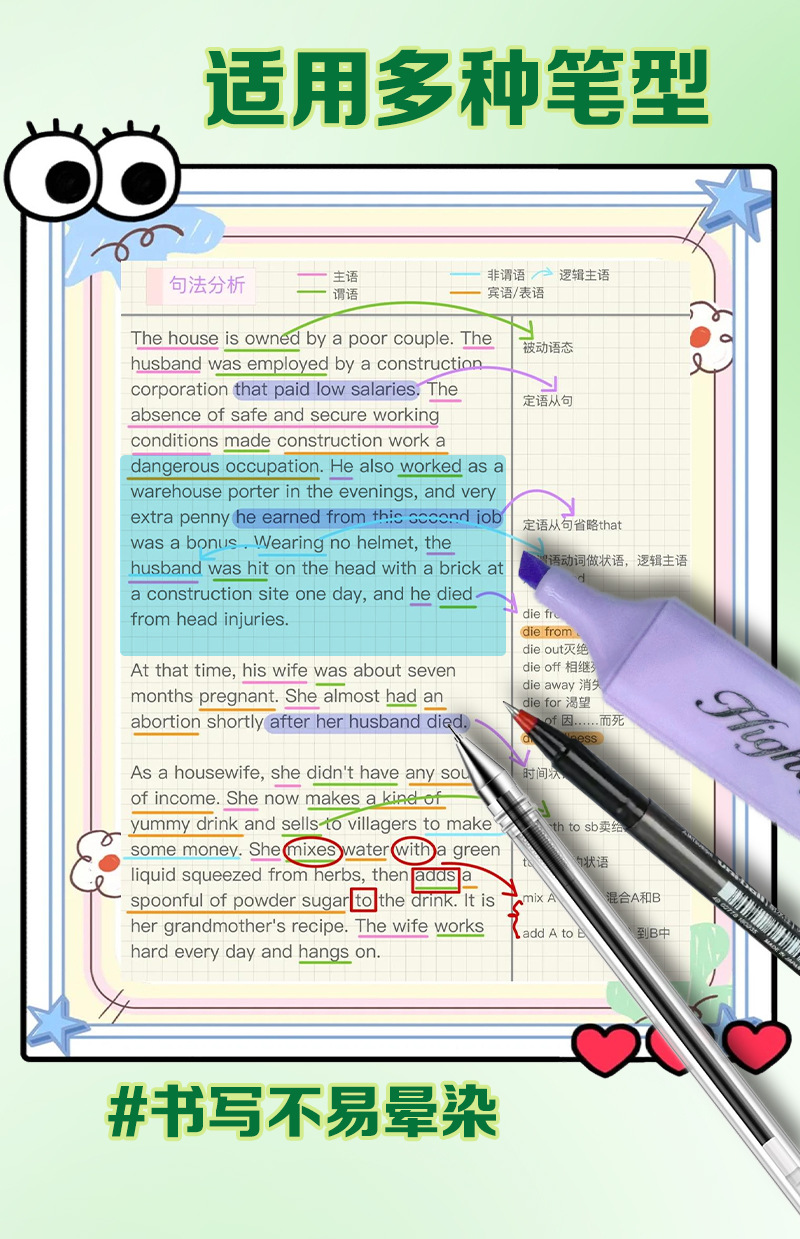 适用多种笔型
句法分析
主语
谓语
非谓语
逻辑主语
宾语/表语
The house is owned by a poor couple. The
husband was employed by a construction
corporation that paid low salaries. The
absence of safe and secure working
conditions made construction work a
dangerous occupation. He also worked as a
warehouse porter in the evenings, and very
extra penny he earned from this second job
was a bonus . Wearing no helmet, the
husband was hit on the head with a brick at
a construction site one day, and he died
from head injuries.
At that time, his wife was about seven
months pregnant. She almost had an
abortion shortly after her husband died.
As a housewife, she didn't have any
of income. She now makes a kind of
yummy drink and sells to villagers to make
some money. She mixes water with a green
liquid squeezed from herbs, then adds a
spoonful of powder sugar to the drink. It is
her grandmother's recipe. The wife works
hard every day and hangs on.
被动语态
定语从句
定语从句省略that
语动词做状语，逻辑主语
die
die from
die out灭绝
die off 相继
die away 消失
die for 渴望
of 因……而死
时间状
to sb卖给
的状语
mix A 混合A和B
add A to 到B中
#书写不易晕染